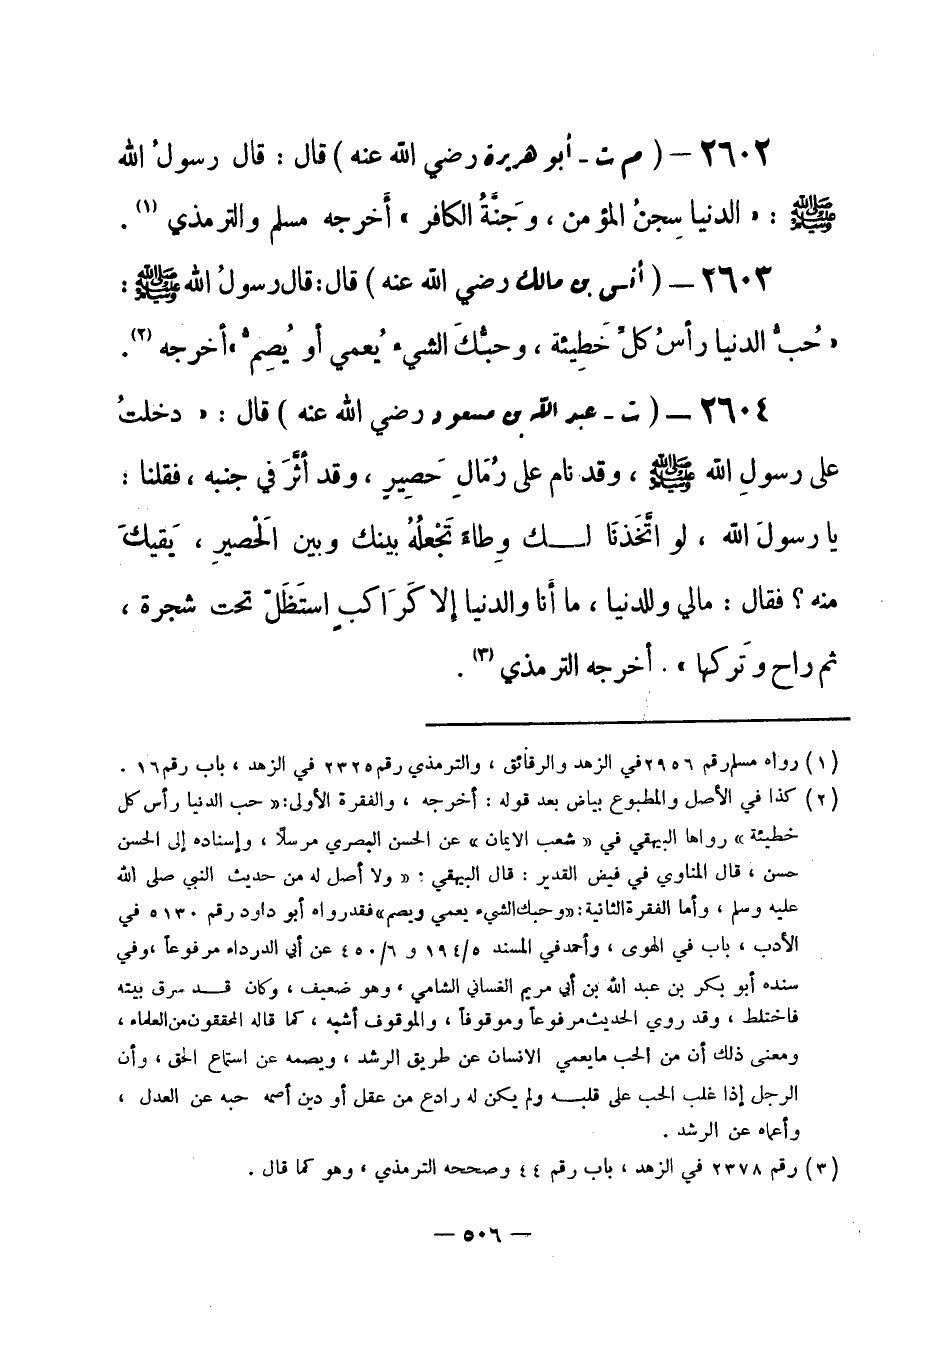 ٢٦٠٢ – ( م ت - أبو هريرة رضي الله عنه ) قال : قال رسولُ الله
ﷺ : « الدنيا سِجنُ المؤمن ، وَجنَّةُ الكافر » أَخرجه مسلم والترمذي (١) .
٢٦٠٣ – ( أنس بن مالك رضي الله عنه ) قال : قال رسولُ الله ﷺ :
« حُبُّ الدنيا رأسُ كلِّ خَطِيئة ، وحبُّكَ الشيء يُعمي أو يُصِمُّ » أخرجه (٢) .
٢٦٠٤ – ( ت - عبد الله بن مسعود رضي الله عنه ) قال : « دخلتُ
على رسولِ الله ﷺ ، وقد نام على رُمَالِ حَصِيرٍ ، وقد أثَّرَ في جنبه ، فقلنا :
يا رسولَ الله ، لو اتَّخَذنَا لــك وِطاءً تَجْعلُهُ بينك وبين الَحْصيرِ ، يَقيكَ
منه ؟ فقال : مالي وللدنيا ، ما أنا والدنيا إلا كَرَاكبٍ استَظَلَّ تحت شجرة ،
ثم راح وتَركها » . أخرجه الترمذي (٣) .
(١) رواه مسلم رقم ٢٩٥٦ في الزهد والرقائق ، والترمذي رقم ٢٣٢٥ في الزهد ، باب رقم ١٦ .
(٢) كذا في الأصل والمطبوع بياض بعد قوله : أخرجه ، والفقرة الأولى : « حب الدنيا رأس كل
خطيئة » رواها البيهقي في « شعب الايمان » عن الحسن البصري مرسلًا ، وإسناده إلى الحسن
حسن ، قال المناوي في فيض القدير : قال البيهقي : « ولا أصل له من حديث النبي صلى الله
عليه وسلم ، وأما الفقرة الثانية : « وحبك الشيء يعمي ويصم » فقد رواه أبو داود رقم ٥١٣٠ في
الأدب ، باب في الهوى ، وأحمد في المسند ١٩٤/٥ و ٤٥٠/٦ عن أبي الدرداء مرفوعاً ، وفي
سنده أبو بكر بن عبد الله بن أبي مريم الغساني الشامي ، وهو ضعيف ، وكان قــد سرق بيته
فاختلط ، وقد روي الحديث مرفوعاً وموقوفاً ، والموقوف أشبه ، كما قاله المحققون من العلماء ،
ومعنى ذلك أن من الحب ما يعمي الانسان عن طريق الرشد ، ويصمه عن استماع الحق ، وأن
الرجل إذا غلب الحب على قلبــه ولم يكن له رادع من عقل أو دين أصمه حبه عن العدل ،
وأعماه عن الرشد .
(٣) رقم ٢٣٧٨ في الزهد ، باب رقم ٤٤ وصححه الترمذي ، وهو كما قال .
– ٥٠٦ –